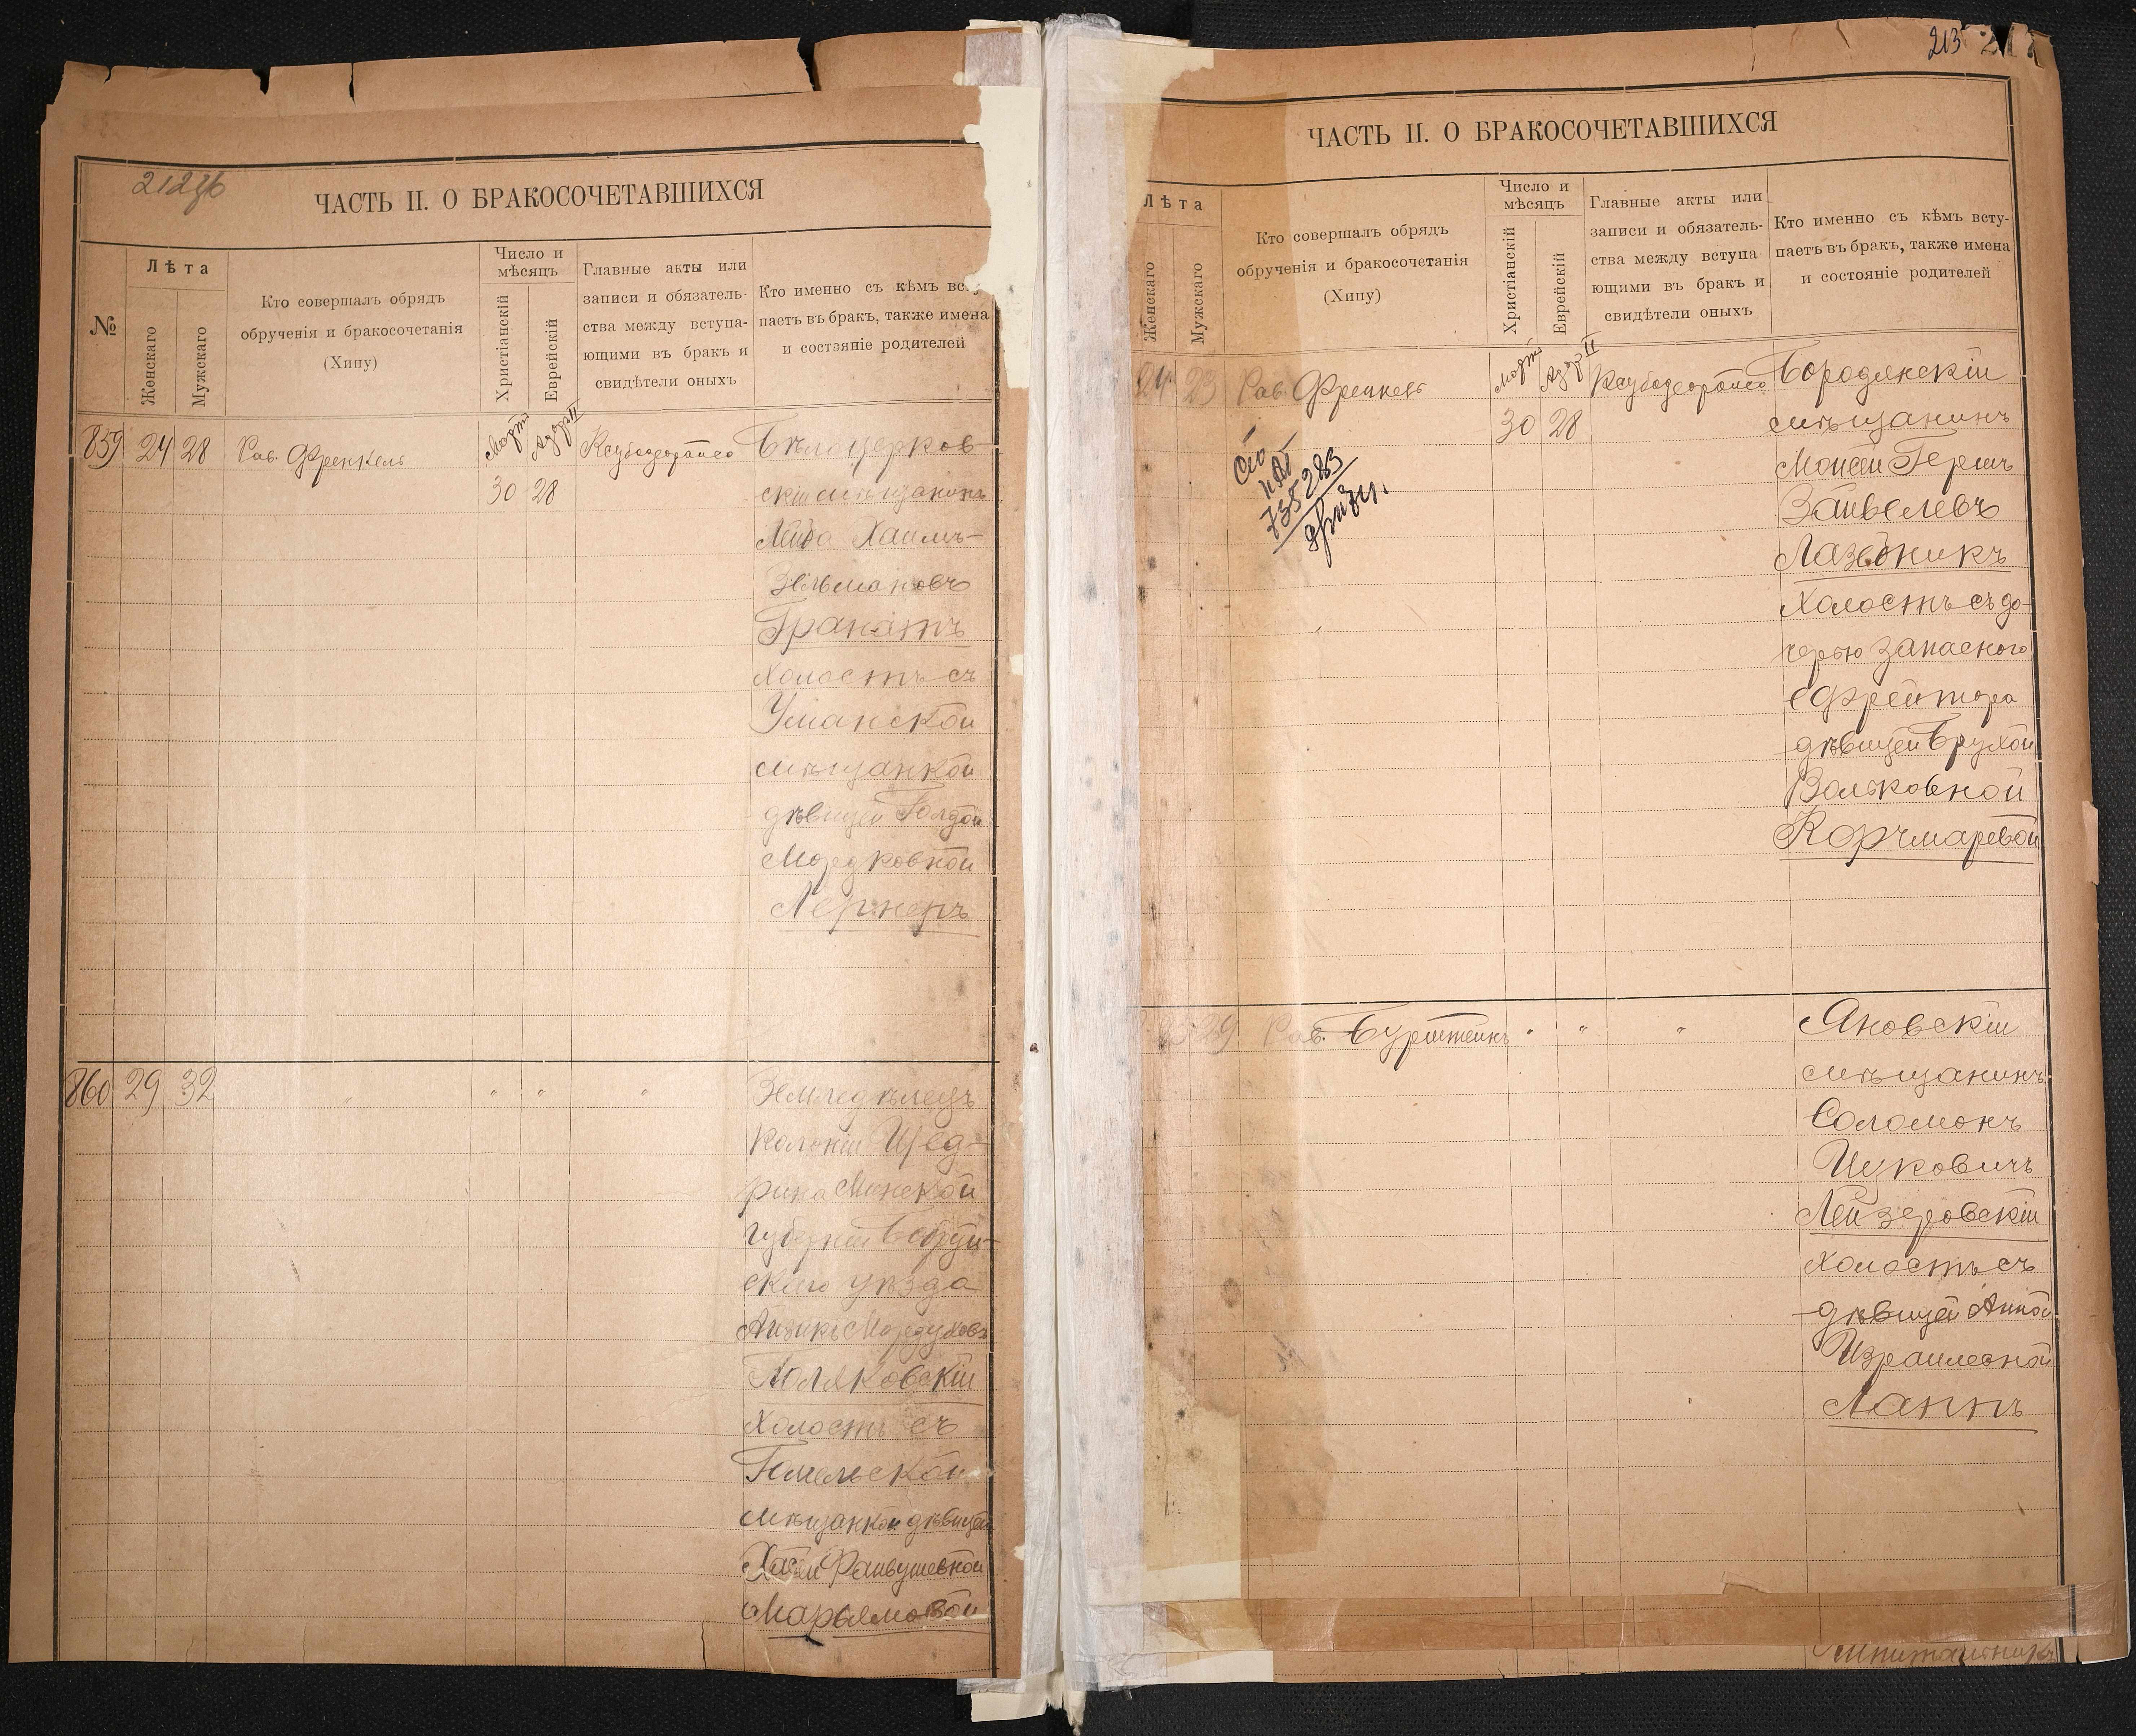 212 об
ЧАСТЬ II. О БРАКОСОЧЕТАВШИХСЯ
№
Лѣта
Женскаго
Мужскаго
Кто совершалъ обрядъ
обрученія и бракосочетанія
(Хипу)
Число и
мѣсяцъ
Христіанскій
Еврейскій
Главные акты или
записи и обязатель-
ства между вступа-
ющими въ бракъ и
свидѣтели оныхъ
Кто именно съ кѣмъ всту
паетъ въ бракъ, также имена
и состояніе родителей
859 24 28 Рав. Френкель Мартъ Адаръ II Бѣлоцерков-
30 28 скій мѣщанинъ
Лейба Хаимъ-
Зельмановъ
Гранатъ
холостъ съ
Уманской
мѣщанкой
дѣвицей Голдой
Мордковной
Лернеръ
860 29 32 " " " " Земледѣлецъ
Колоніи Щед-
рина Минской
губерніи Бобруй-
скаго уѣзда
Айзикъ Мордуховъ
Поляковскій
холостъ съ
Гомельской
мѣщанкой дѣвицей
Хасей Файвушевной
Марьямовой
213
ЧАСТЬ II. О БРАКОСОЧЕТАВШИХСЯ
Лѣта
Женскаго
Мужскаго
Кто совершалъ обрядъ
обрученія и бракосочетанія
(Хипу)
Число и
мѣсяцъ
Христіанскій
Еврейскій
Главные акты или
записи и обязатель-
ства между вступа
ющими въ бракъ и
свидѣтели оныхъ
Кто именно съ кѣмъ всту-
паетъ въ бракъ, также имена
и состояніе родителей
24 23 Рав. Френкель Мартъ Адаръ II Бородянскій
30 28 мѣщанинъ
735283
Моисей Гершъ
Зайвелевъ
Лазебникъ
холостъ съ до-
черью запаснаго
ефрейтора
дѣвицей Брухой
Вольковной
Корчмаревой
29 Рав. Бурштейнъ " " " Яновскій
мѣщанинъ
Соломонъ
Ицковичъ
Лейзеровскій
холостъ съ
дѣвицей Анной
Израилевной
Лаппъ